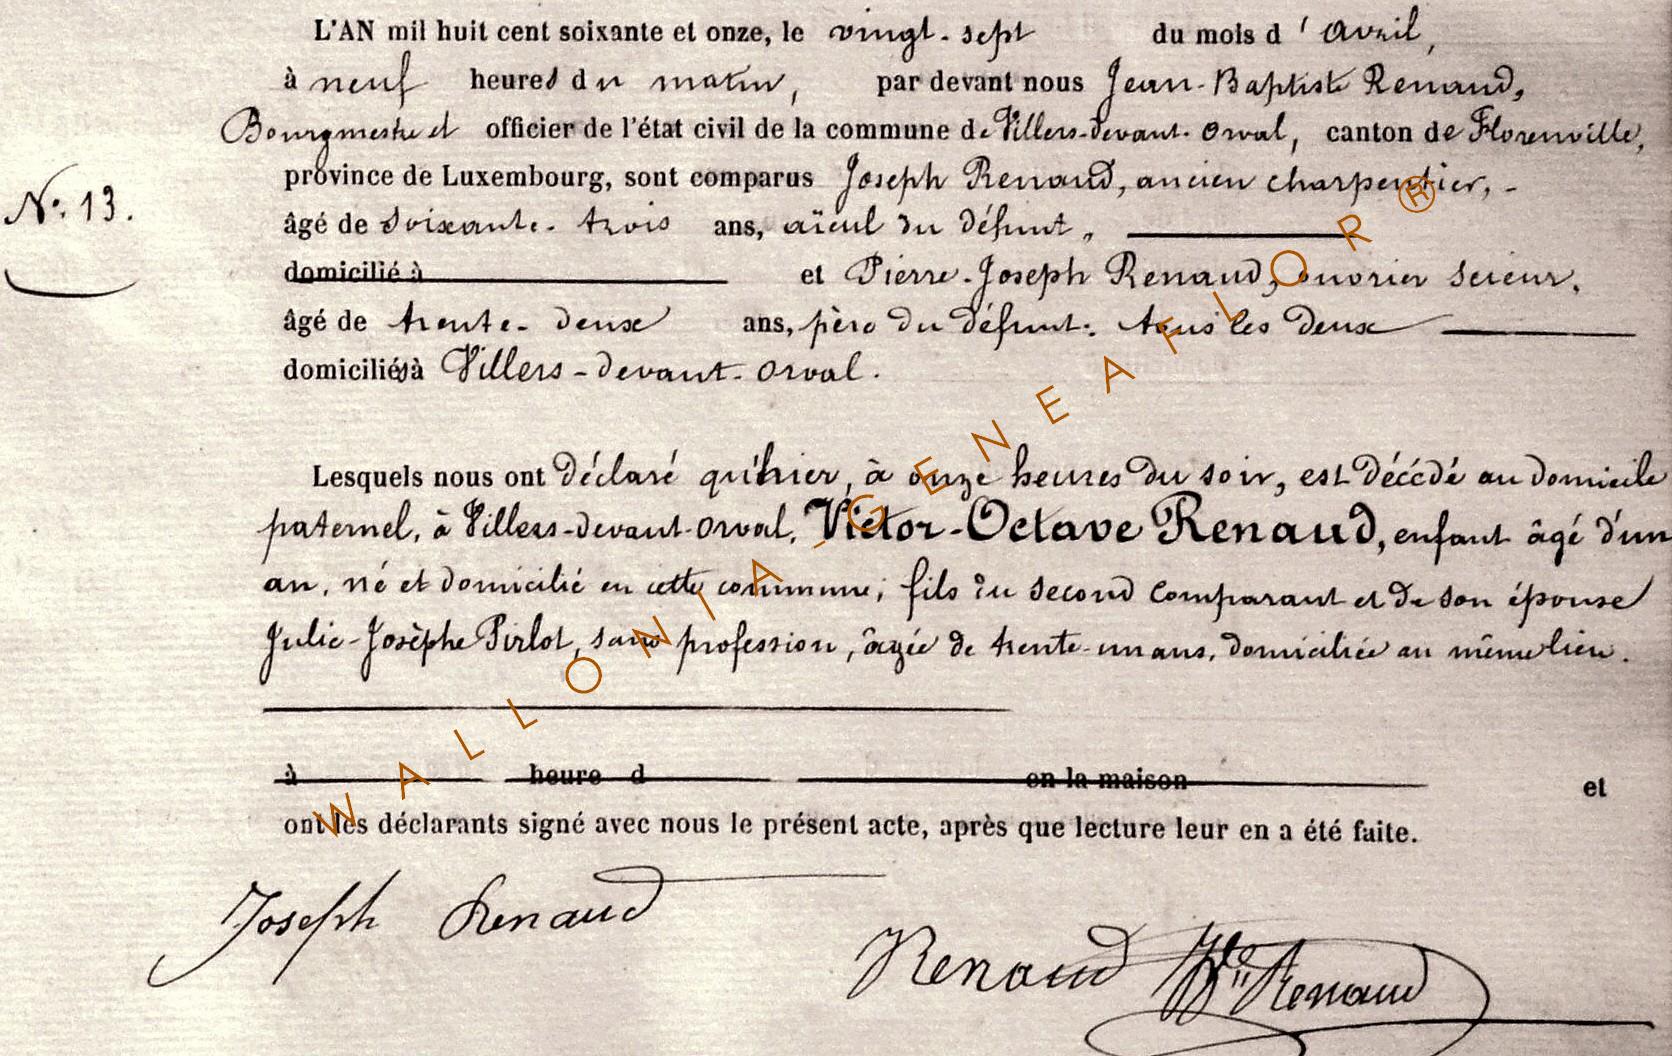 L'AN mil huit cent soixante et onze, le vingt-sept du mois d'avril,
à neuf heures du matin, par devant nous Jean-Baptiste Renaud,
Bourgmestre et officier de l'état civil de la commune de Villers-devant-Orval, canton de Florenville,
province de Luxembourg, sont comparus Joseph Renaud, ancien charpentier, -
N°. 13.
âgé de soixante-trois ans, aïeul du défunt,
domicilié à et Pierre-Joseph Renaud, ouvrier scieur,
âgé de trente-deux ans, père du défunt: tous les deux
domiciliés à Villers-devant-Orval.
Lesquels nous ont déclaré qu'hier, à onze heures du soir, est décédé au domicile
paternel, à Villers-devant-Orval, Victor-Octave Renaud, enfant âgé d'un
an, né et domicilié en cette commune; fils du second comparant et de son épouse
Julie-Josèphe Pirlot, sans profession, âgée de trente-un ans, domiciliée au même lieu.
à heure d en la maison et
ont les déclarants signé avec nous le présent acte, après que lecture leur en a été faite.
Joseph Renaud
Renaud Renaud
WALLONIA-GENEAFLOR®